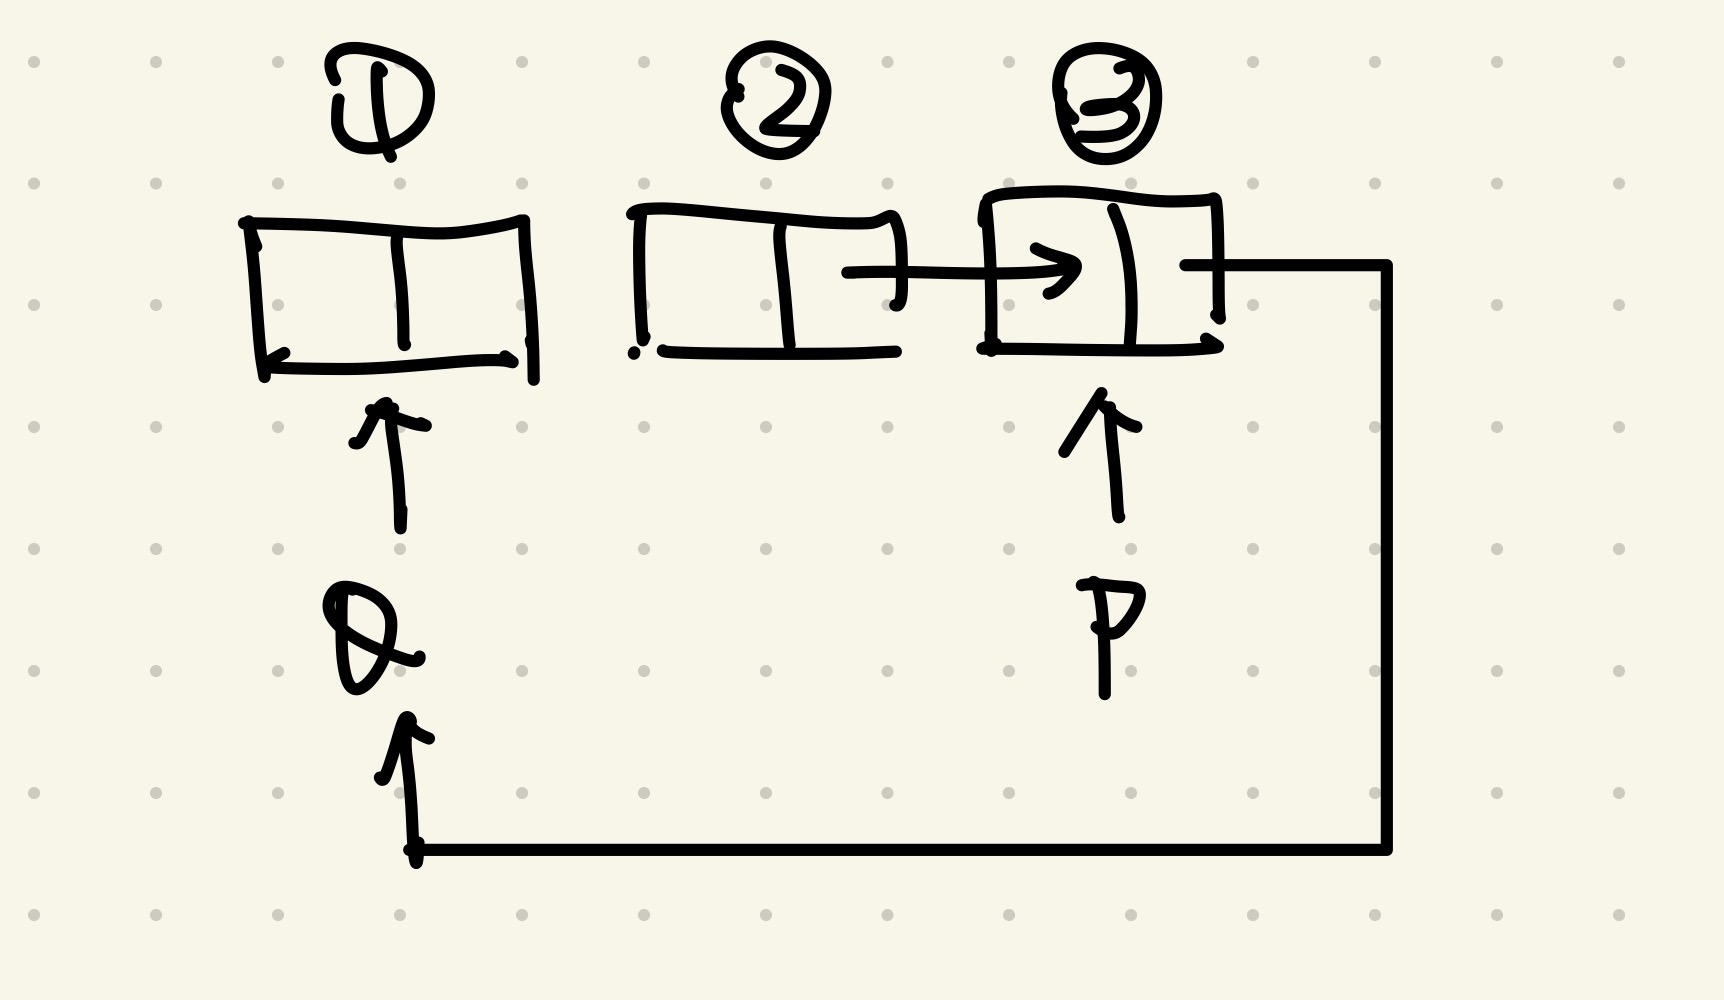 ① ② ③
Q P